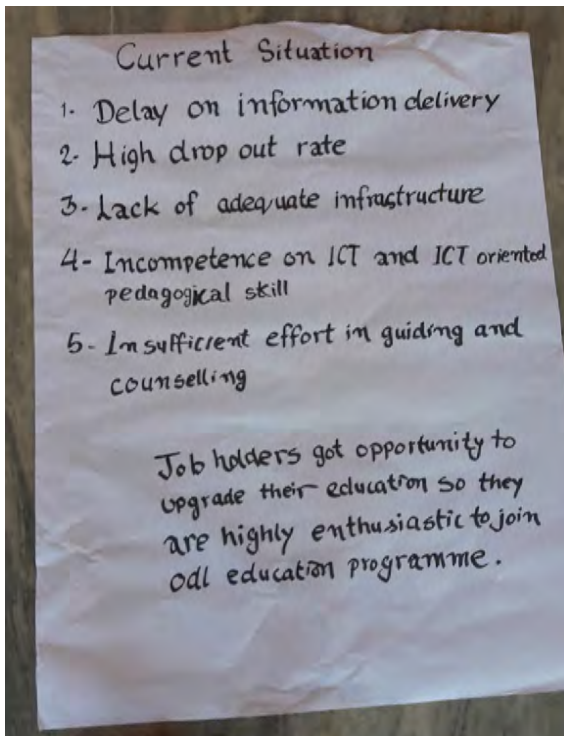 Current Situation
1. Delay on information delivery
2- High drop out rate
3- Lack of adequate infrastructure
4- Incompetence on ICT and ICT oriented
pedagogical skill
5- Insufficient effort in guiding and
counselling
Job holders got opportunity to
upgrade their education so they
are highly enthusiastic to join
odl education programme.